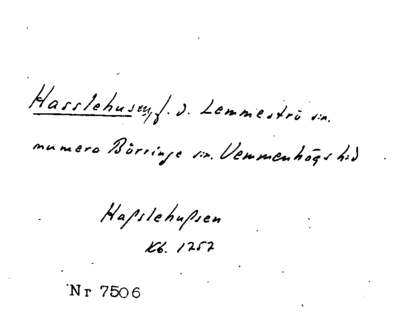 Hasslehusen, f. d. Lemmeströ sn.
numera Börringe sn. Vemmenhögs hd
Haßlehußen
Kb. 1757
Nr 7506